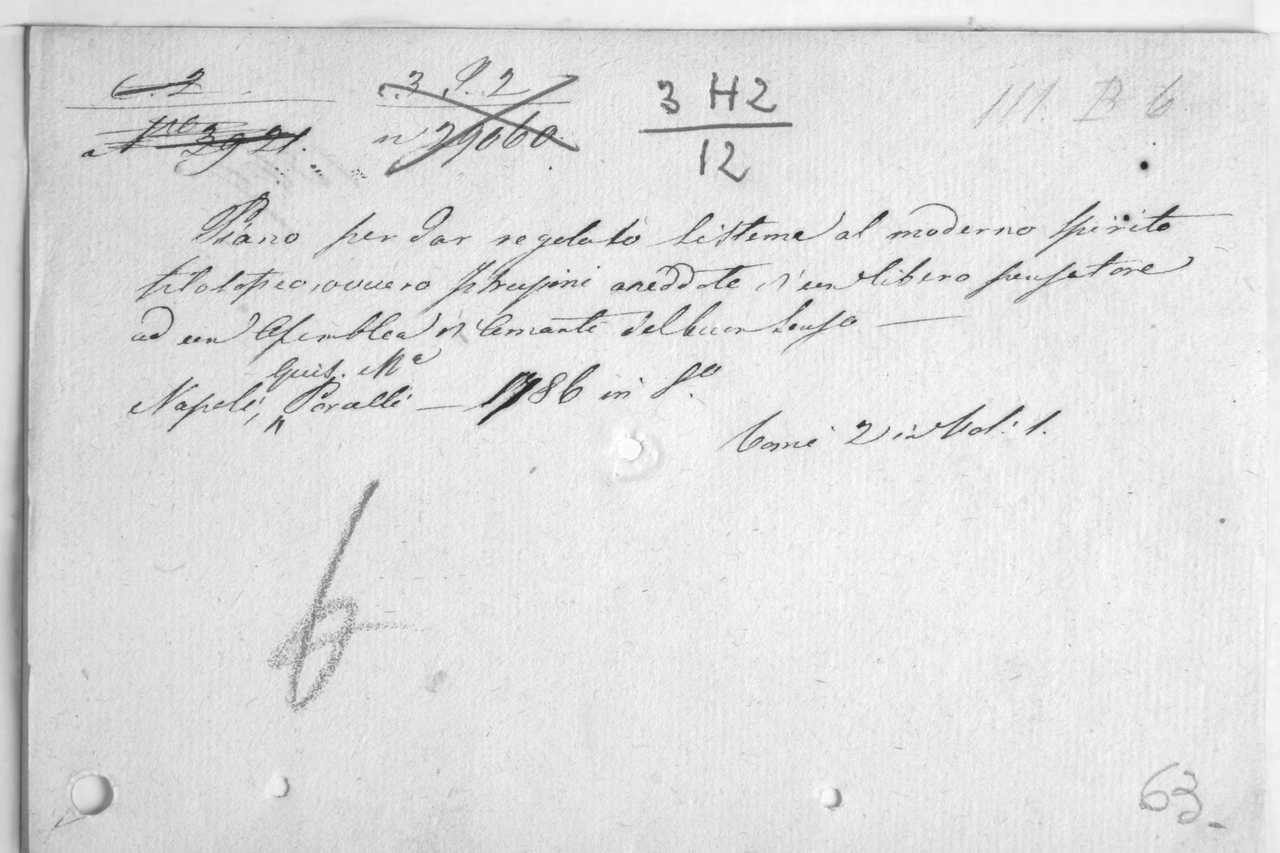 C. 2
3 P. 2
3 H2
12
III. B 6
a No 3921.
n 29060.
Piano per dar regolato sistema al moderno spirito
filosofico, ovvero aneddote d'un libero pensatore
ad un Asemblea d'Amanti del buon senso —
Gius. Ma
Napoli, Porcelli — 1786 in 8.o
Tomi 2 in Vol: 1.
6
63